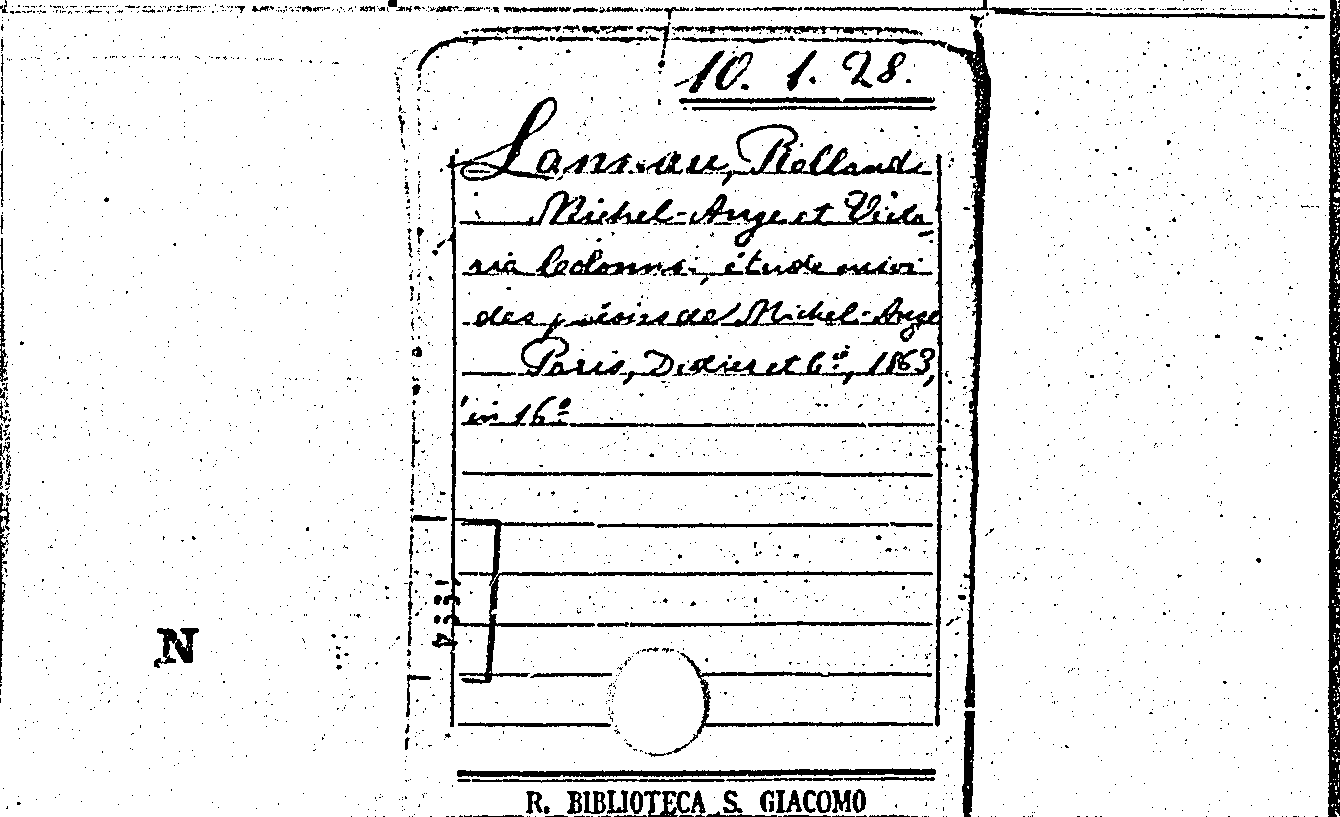 10. 1. 28.
Lanneau, Rolland
Michel-Ange et Vitto
ria Colonna, étude suivi
des poésies de Michel-Ange
Paris, Didier et C.ie, 1863,
in 16º
N
R. BIBLIOTECA S. GIACOMO